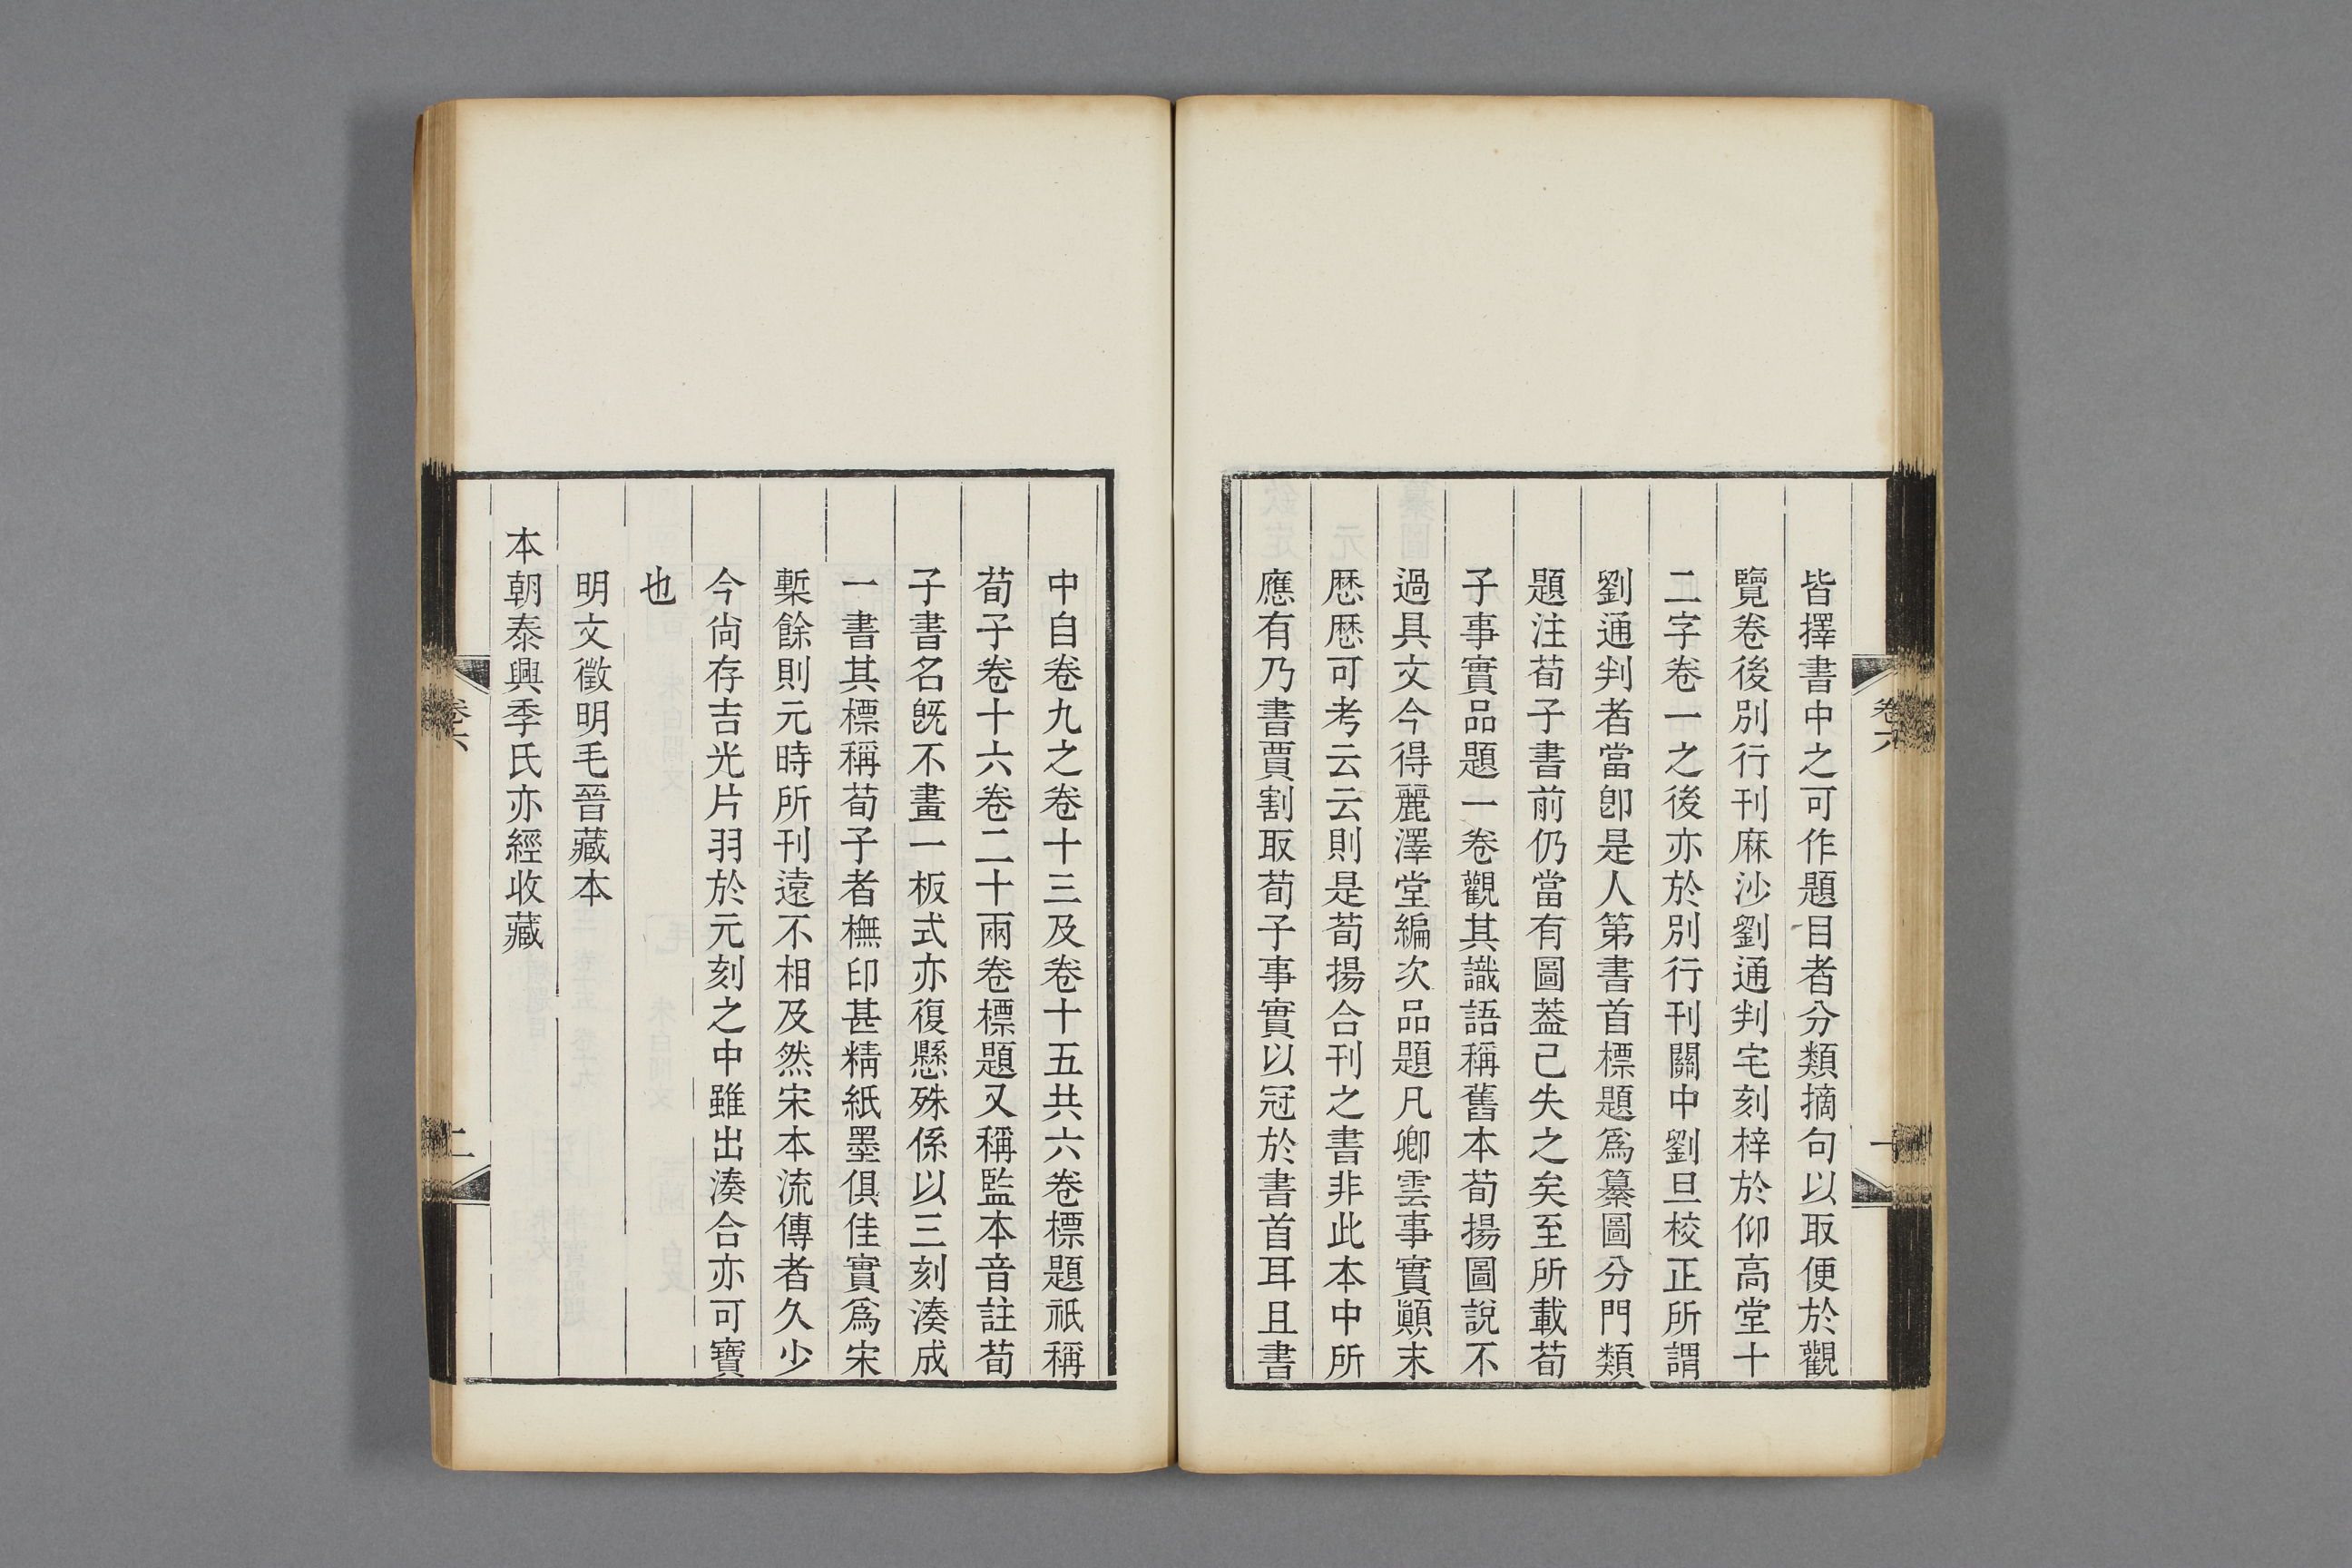 皆擇書中之可作題目者分類摘句以取便於觀
覽卷後別行刊麻沙劉通判宅刻梓於仰高堂十
二字卷一之後亦於別行刊關中劉旦校正所謂
劉通判者當卽是人第書首標題爲纂圖分門類
題注荀子書前仍當有圖蓋已失之矣至所載荀
子事實品題一卷觀其識語稱舊本荀揚圖說不
過具文今得麗澤堂編次品題凡卿雲事實顚末
厯厯可考云云則是荀揚合刊之書非此本中所
應有乃書賈割取荀子事實以冠於書首耳且書
卷六
中自卷九之卷十三及卷十五共六卷標題祇稱
荀子卷十六卷二十兩卷標題又稱監本音註荀
子書名旣不畫一板式亦復懸殊係以三刻湊成
一書其標稱荀子者橅印甚精紙墨俱佳實爲宋
槧餘則元時所刊遠不相及然宋本流傳者久少
今尙存吉光片羽於元刻之中雖出湊合亦可寶
也
明文徵明毛晉藏本
本朝泰興季氏亦經收藏
卷六